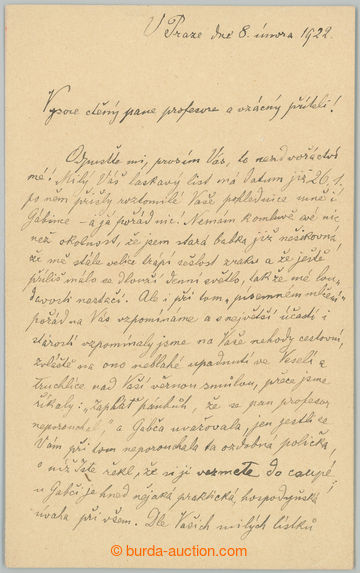 V Praze dné 8. února 1922.
Vysoce ctěný pane profesore a vzácný příteli!
Odpusťte mi, prosím Vás, to
mé! Milý Váš laskavý list má datum již 26./1.
po něm přišly roztomilé Vaše pohlednice mně i
Gabince – a já pořád nic! Nemám k omluvě své nic
než okolnost, že jsem stará babka, již nešikovná,
že mě stále velice trapí sešlost zraku a že ještě
příliš málo se dlouží denní světlo, tak že mé
nestačí. Ale i při tom písemném mlčení
pořád na Vás vzpomínáme a s největší účastí i
starostí vzpomínaly jsme na Vaše nehody cestovní,
zvláště na ono neblahé upadnutí ve Veselí a
nad Vaší věrnou, přece jsme
říkaly: „Zaplať pánbůh, že se pan profesor
neporouchal" a Gabča uvažovala, jen jestli se
Vám při tom neporouchala ta ozdobná polička,
o níž jste řekl, že si ji vezmete do coupé!
u Gabči je hned nějaká praktická, hospodyňská
úvaha při všem. Dle Vašich milých lístků
burda-auction.com